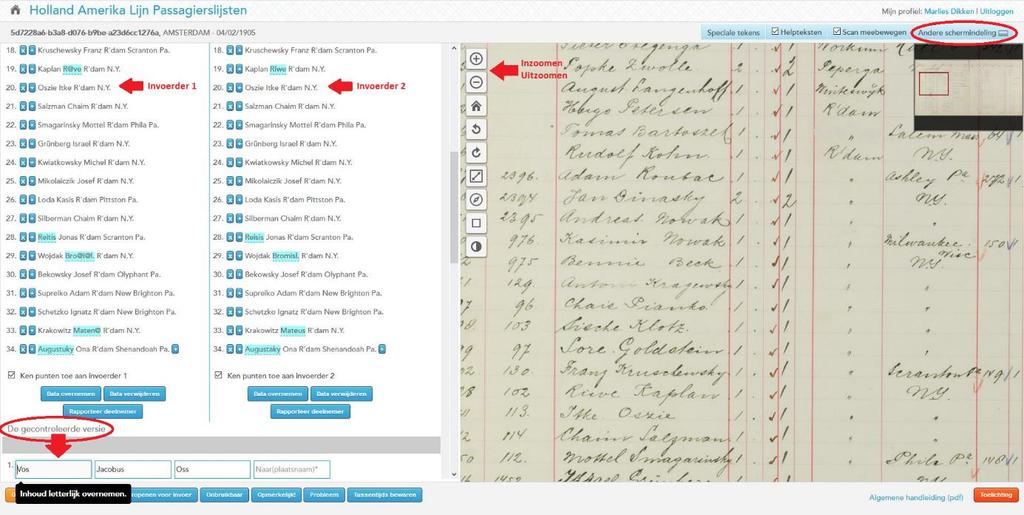 Holland Amerika Lijn Passagierslijsten
Mijn profiel: Marlies Dikken | Uitloggen
5d7228a6-b3a8-d076-b9be-a23d6cc1276a, AMSTERDAM - 04/02/1905
Speciale tekens
Helpteksten
Scan meebewegen
Andere schermindeling
18. Kruschewsky Franz R'dam Scranton Pa.
19. Kaplan R@ve R'dam N.Y.
20. Oszie Itke R'dam N.Y.
Invoerder 1
21. Salzman Chaim R'dam N.Y.
22. Smagarinsky Mottel R'dam Phila Pa.
23. Grünberg Israel R'dam N.Y.
24. Kwiatkowsky Michel R'dam N.Y.
25. Mikolaiczik Josef R'dam N.Y.
26. Loda Kasis R'dam Pittston Pa.
27. Silberman Chaim R'dam N.Y.
28. Reitis Jonas R'dam Scranton Pa.
29. Wojdak Bro@t@f. R'dam N.Y.
30. Bekowsky Josef R'dam Olyphant Pa.
31. Supreiko Adam R'dam New Brighton Pa.
32. Schetzko Ignatz R'dam New Brighton Pa.
33. Krakowitz Maten@ R'dam N.Y.
34. Augustuky Ona R'dam Shenandoah Pa.
Ken punten toe aan invoerder 1
Data overnemen
Data verwijderen
Rapporteer deelnemer
18. Kruschewsky Franz R'dam Scranton Pa.
19. Kaplan Riwe R'dam N.Y.
20. Oszie Itke R'dam N.Y.
Invoerder 2
21. Salzman Chaim R'dam N.Y.
22. Smagarinsky Mottel R'dam Phila Pa.
23. Grünberg Israel R'dam N.Y.
24. Kwiatkowsky Michel R'dam N.Y.
25. Mikolaiczik Josef R'dam N.Y.
26. Loda Kasis R'dam Pittston Pa.
27. Silberman Chaim R'dam N.Y.
28. Reisis Jonas R'dam Scranton Pa.
29. Wojdak Bromisl. R'dam N.Y.
30. Bekowsky Josef R'dam Olyphant Pa.
31. Supreiko Adam R'dam New Brighton Pa.
32. Schetzko Ignatz R'dam New Brighton Pa.
33. Krakowitz Mateus R'dam N.Y.
34. Augustaky Ona R'dam Shenandoah Pa.
Ken punten toe aan invoerder 2
Data overnemen
Data verwijderen
Rapporteer deelnemer
De gecontroleerde versie
1. Vos Jacobus Oss Naar(plaatsnaam)*
Inhoud letterlijk overnemen.
openen voor invoer
Onbruikbaar
Opmerkelijk!
Probleem
Tussentijds bewaren
Algemene handleiding (pdf)
Toelichting
Inzoomen
Uitzoomen
Popke Zwolle 2 Peperga
August Langenhoff 1 Winterswijk
Hugo Petersen 1 R'dam
Tomas Bartoszel 1 " Salem Mass
Rudolf Kohn 1 R'dam N.Y.
2396. Adam Roubac 1 " Ashley Pa 272 1
2394 Jan Dinasky 2 " N.Y.
2395 Andreas Nowak 1 "
976. Kasimir Nowak 1 " Milwaukee Wisc 150 1
975 Bennie Beck 1 " N.Y.
129. Antoni Kragewsky 1
96 Chaie Pianko 1 "
103 Sische Klotz 1
97 Sore Goldstein 1 "
130. Franz Kruschewsky 1 " Scranton Pa 149 1
102 Riwe Kaplan 1 " N.Y.
113. Itke Oszie 1 "
114 Chaim Salzman 1 "
112. Mottel Smagarinsky 1 " Phila Pa 148 1